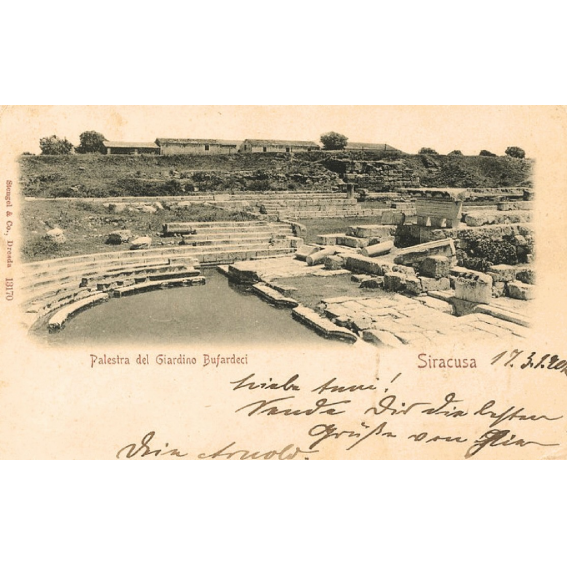 Stengel & Co., Dresda 13170
Palestra del Giardino Bufardeci
Siracusa
17. 3.
Liebe Anni!
Sende Dir die besten
Grüße von
Dein Arnold.